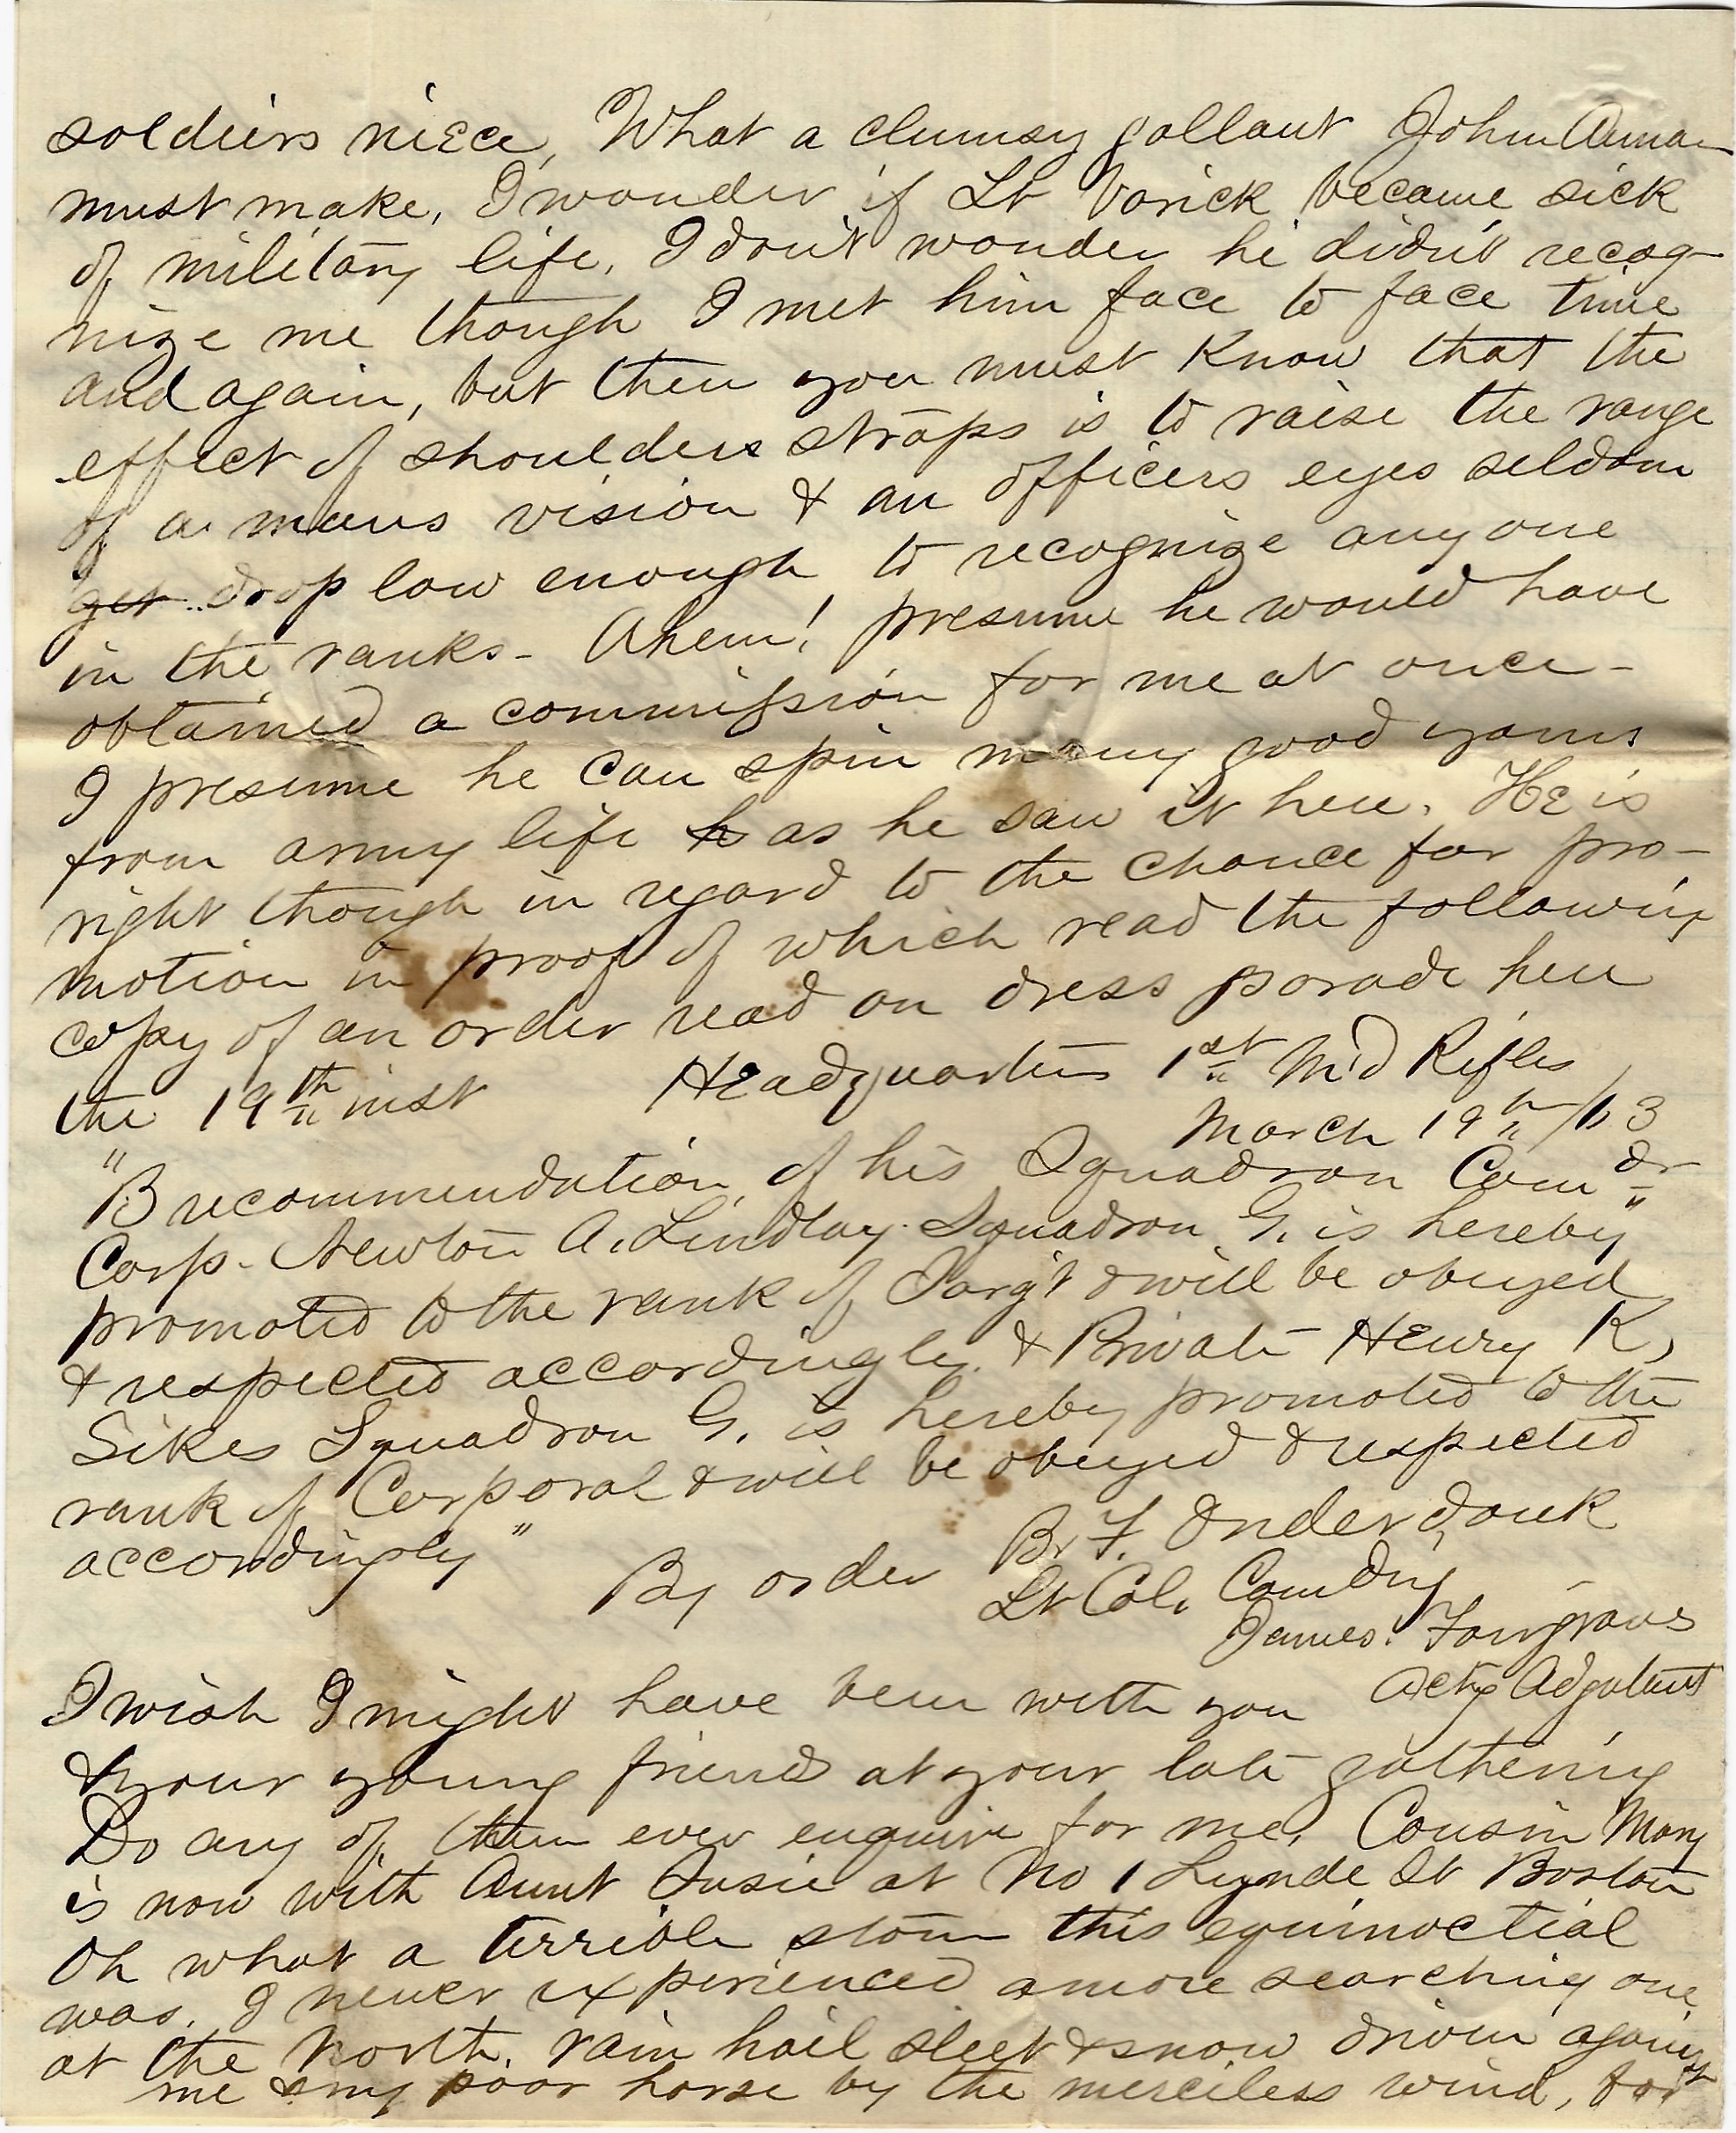 soldiers niece, What a clumsy gallant John
must make, I wonder if Lt Varick became sick
of military life, I don't wonder he didn't recog-
nize me though I met him face to face time
and again, but then you must know that the
effect of shoulders straps is to raise the range
of a mans vision & an officers eyes seldom
get drop low enough to recognize any one
in the ranks - Ahem! presume he would have
obtained a commission for me at once -
I presume he can spin many good yarns
from army life h as he saw it here. He is
right though in regard to the chance for pro-
motion in proof of which read the following
copy of an order read on dress parade here
the 19th inst Headquarters 1st M'd Rifles
March 19th /63
"B recommendation of his Squadron Comdr
Corp. Newton A. Lindlay Squadron G. is hereby
promoted to the rank of Sarg't & will be obeyed
& respected accordingly. & Private Henry K,
Sikes Squadron G. is hereby promoted to the
rank of Corporal & will be obeyed & respected
accordingly"
By order B. F. Onderdonk
Lt Col. Comdng
James. Fairgraves
Actg Adjutant
I wish I might have been with you
& your young friends at your late gathering
Do any of them ever enquire for me. Cousin Mary
is now with Aunt Susie at No 1 Lynde St Boston
Oh what a terrible storm this equinoctial
was. I never experienced a more searching one
at the North. rain hail sleet & snow driven against
me & my poor horse by the merciless wind, for